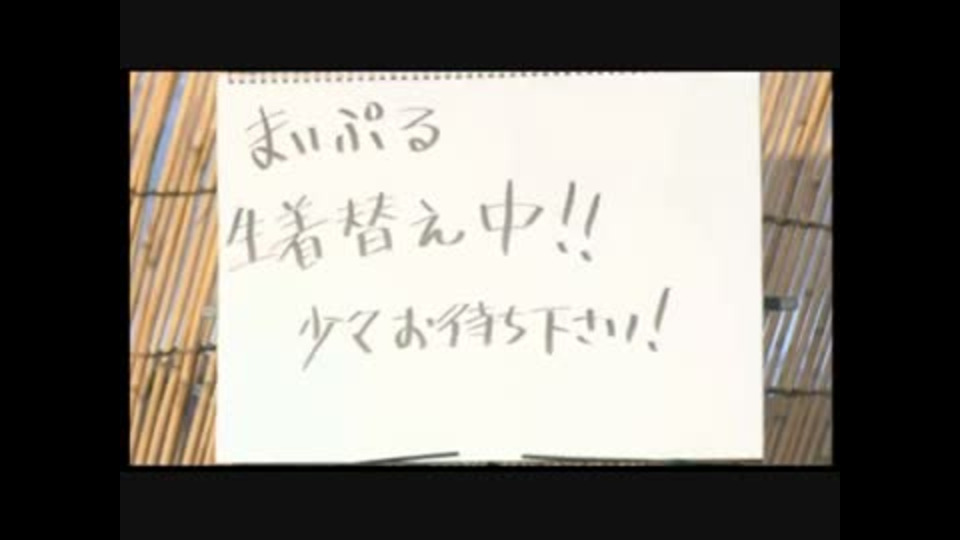 まいぷる
生着替え中!!
少々お待ち下さい!